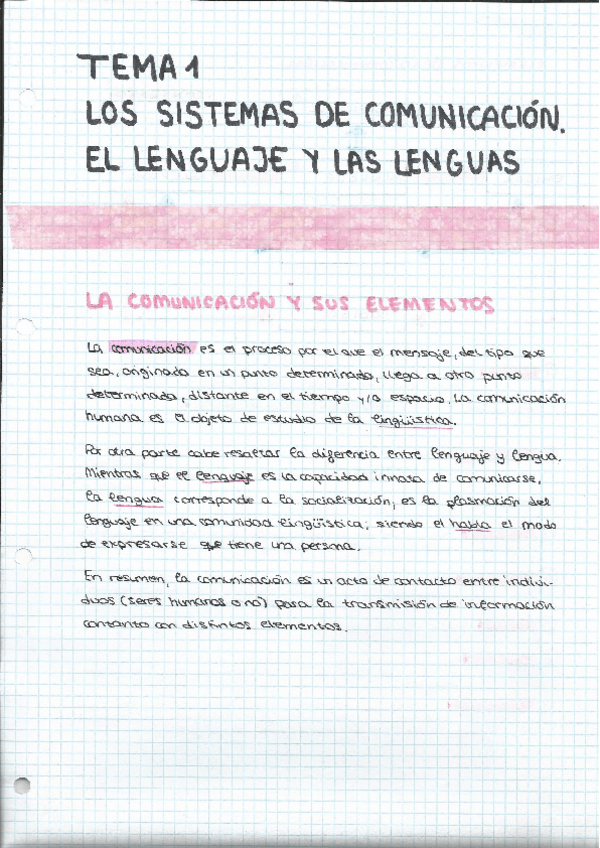 TEMA 1
LOS SISTEMAS DE COMUNICACIÓN.
EL LENGUAJE Y LAS LENGUAS
LA COMUNICACIÓN Y SUS ELEMENTOS
La comunicación es el proceso por el que el mensaje, del tipo que
sea, originado en un punto determinado, llega a otro punto
determinado, distante en el tiempo y/o espacio. La comunicación
humana es el objeto de estudio de la lingüística.
Por otra parte cabe resaltar la diferencia entre lenguaje y lengua.
Mientras que el lenguaje es la capacidad innata de comunicarse,
la lengua corresponde a la socialización, es la plasmación del
lenguaje en una comunidad lingüística, siendo el habla el modo
de expresarse que tiene una persona.
En resumen, la comunicación es un acto de contacto entre indivi-
duos (seres humanos o no) para la transmisión de información
contanto con distintos elementos.